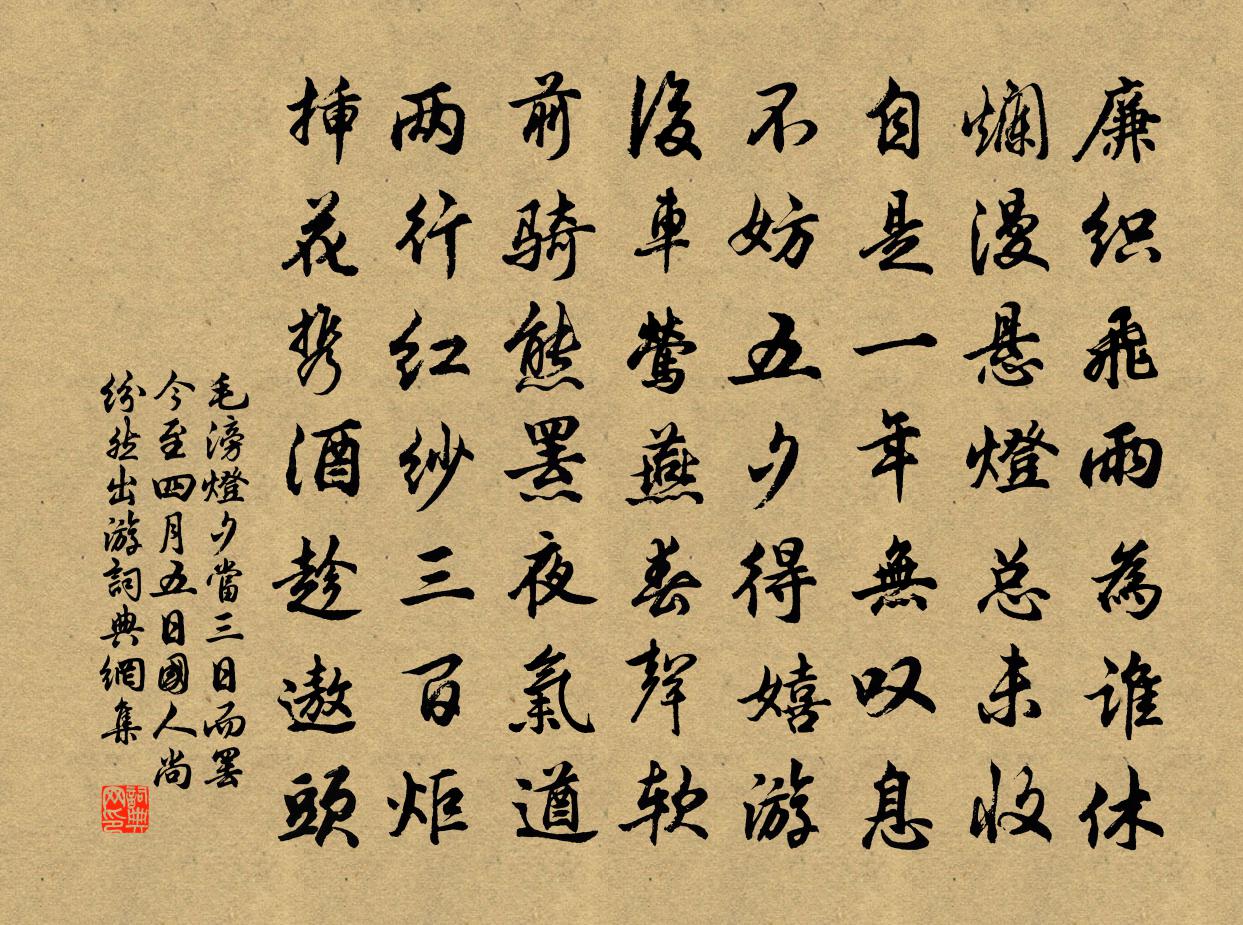 廉织飛雨為誰休
爛漫悬燈总未收
自是一年無叹息
不妨五夕得嬉游
後車鶯燕春聲软
前騎熊罴夜氣遒
两行红纱三百炬
挿花携酒趁遨頭
毛滂燈夕當三日而罢
今至四月五日國人尚
纷然出游詞典網集
詞典
网印